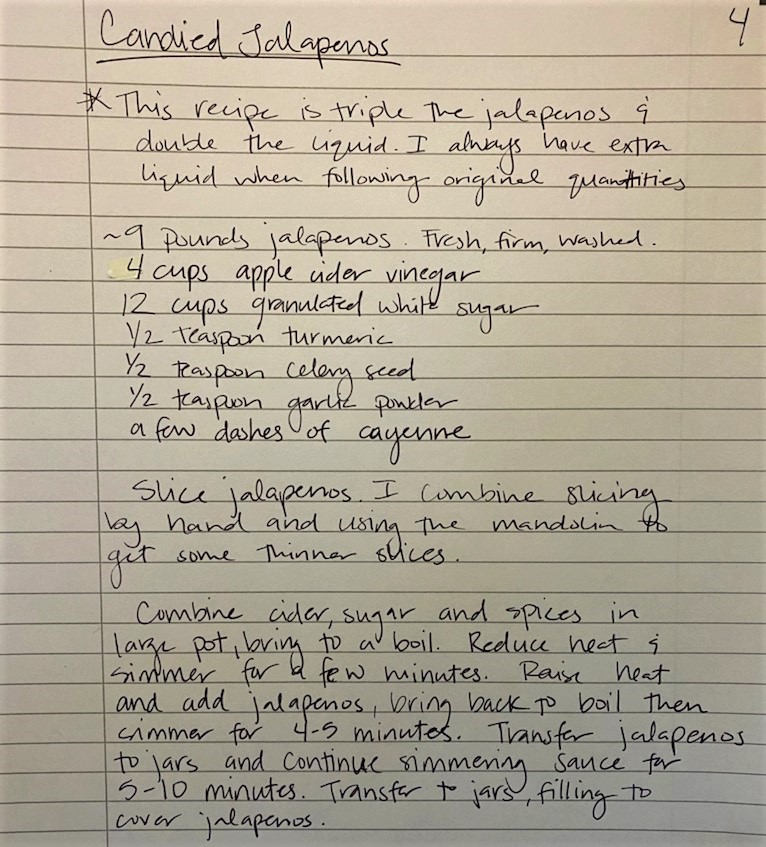 4
Candied Jalapenos
* This recipe is triple the jalapenos &
double the liquid. I always have extra
liquid when following original quantities
~9 pounds jalapenos. Fresh, firm, washed.
4 cups apple cider vinegar
12 cups granulated white sugar
1/2 teaspoon turmeric
1/2 teaspoon celery seed
1/2 teaspoon garlic powder
a few dashes of cayenne
Slice jalapenos. I combine slicing
by hand and using the mandolin to
get some thinner slices.
Combine cider, sugar and spices in
large pot, bring to a boil. Reduce heat &
simmer for a few minutes. Raise heat
and add jalapenos, bring back to boil then
simmer for 4-5 minutes. Transfer jalapenos
to jars and continue simmering sauce for
5-10 minutes. Transfer to jars, filling to
cover jalapenos.